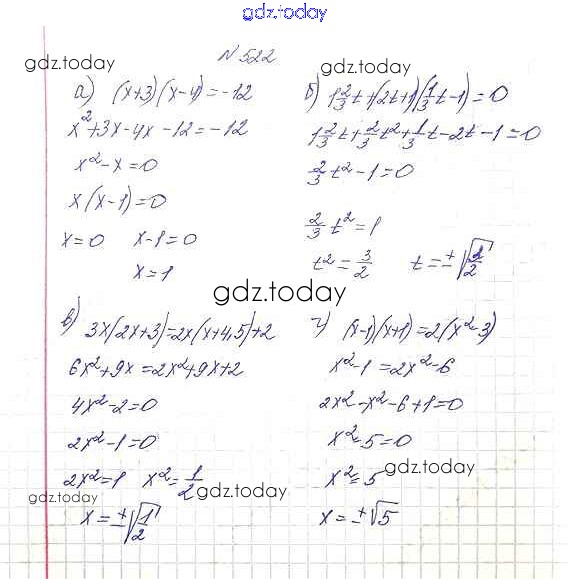 gdz.today
gdz.today
№522
gdz.today
а) (x+3)(x-4)=-12
x²+3x-4x-12=-12
x²-x=0
x(x-1)=0
x=0 x-1=0
x=1
б) 1 2/3 t+(2t+1)(1/3 t-1)=0
1 2/3 t+2/3 t²+1/3 t-2t-1=0
2/3 t²-1=0
2/3 t²=1
t²=3/2 t=±√
gdz.today
в) 3x(2x+3)=2x(x+4,5)+2
6x²+9x=2x²+9x+2
4x²-2=0
2x²-1=0
2x²=1 x²=1/2
gdz.today
x=±√1/2
г) (x-1)(x+1)=2(x²-3)
x²-1=2x²-6
2x²-x²-6+1=0
x²-5=0
x²=5
gdz.today
x=±√5
gdz.today
gdz.today